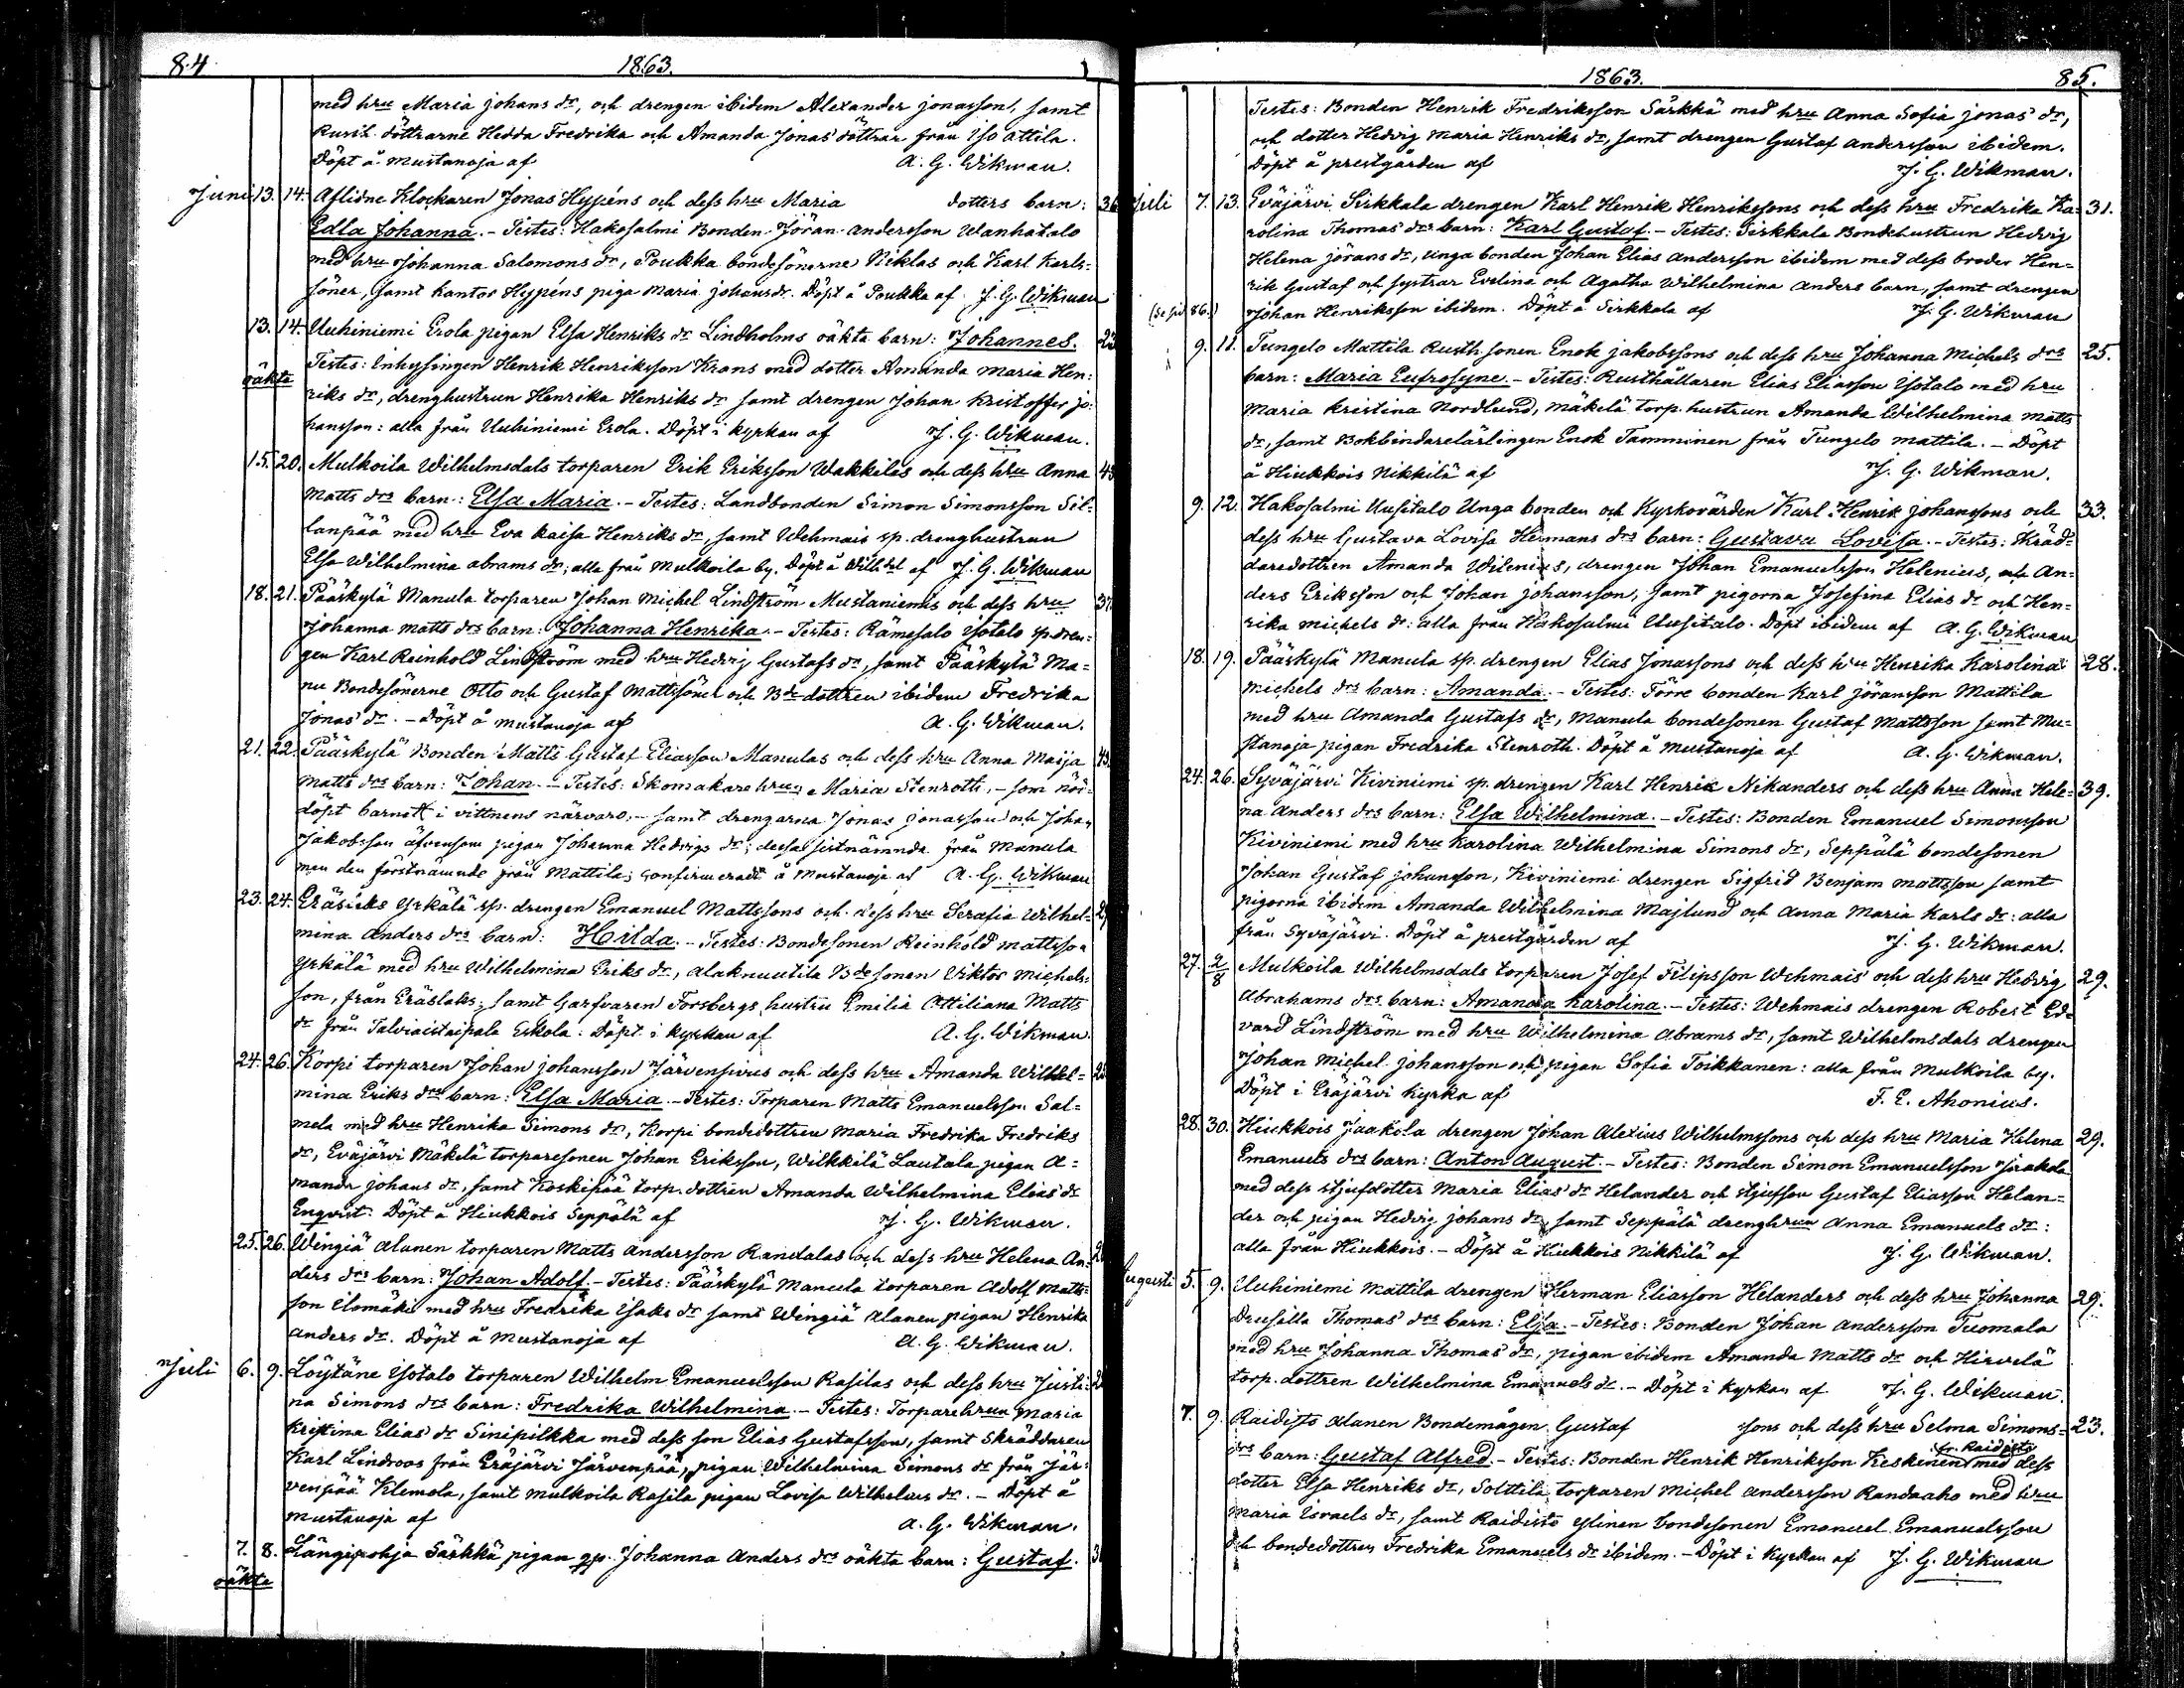 84.
1863.
med hru Maria johans dr, och drengen ibidem Alexander jonasson, samt
Rusth. döttrarne Hedda Fredrika och Amanda Jonas döttrar från Iso attila.
Döpt å Mustanoja af A. G. Wikman.
Juni 13. 14. Aflidne Klockaren Jonas Hypéns och dess hru Maria dotters barn: 36
Edla Johanna. - Testes: Hakosalmi Bonden Jöran andersson Wanhatalo
med hru Johanna Salomons dr, Poukka bondesönerne Niklas och Karl Karls=
söner, samt kantor Hypéns piga Maria johans dr. Döpt å Poukka af J. G. Wikman
13. 14. Uuhiniemi Erola pigan Elsa Henriks dr Lindholms oäkta barn: Johannes. 23
oäkta
Testes: Inhysingen Henrik Henriksson Krans med dotter Amanda Maria Hen=
riks dr, drenghustrun Henrika Henriks dr samt drengen Johan Kristoffer jo=
hansson: alla från Uuhiniemi Erola. Döpt i kyrkan af J. G. Wikman.
15. 20. Mulkoila Wilhelmsdals torparen Erik Eriksson Wakkilas och dess hru Anna 43
Matts drs barn: Elsa Maria. - Testes: Landbonden Simon Simonsson Sil=
lanpää med hru Eva Kaisa Henriks dr, samt Wehmais sp. drenghustrun
Elsa Wilhelmina abrams dr; alla från Mulkoila by. Döpt å Wilhdal af J. G. Wikman
18. 21. Pääskylä Manula torparen Johan Michel Lindström Mustaniemis och dess hru 37
Johanna Matts drs barn: Johanna Henrika. - Testes: Rämesalo Isotalo sp. dren=
gen Karl Reinhold Lindström med hru Hedvig Gustafs dr, samt Pääskylä Ma=
nu Bondesönerne Otto och Gustaf Mattssöner och Bde dottren ibidem Fredrika
Jonas dr. - Döpt å Mustanoja af A. G. Wikman.
21. 22. Pääskylä Bonden Matts Gustaf Eliasson Manulas och dess hru Anna Maija 43.
Matts drs barn: Johan. - Testes: Skomakare hrun Maria Stenroth, - som nöd=
döpt barnet i vittnens närvaro, - samt drengarna Jonas jonasson och Johan
Jakobsson äfvensom pigan Johanna Hedvigs dr; dessa sistnämnda från Manula
men den förstnämnde från Mattila; Confirmeradt å Mustanoja af A. G. Wikman
23. 24. Eräslaks Yrkälä sp. drengen Emanuel Mattssons och dess hru Serafia Wilhel=
mina Anders drs barn: Hilda. - Testes: Bondesonen Reinhold Mattsson
Yrkälä med hru Wilhelmina Eriks dr, alaknuutila Bde sonen Viktor Michels=
son, från Eräslaks; samt Garfvaren Forsbergs hustru Emilia Ottiliana Matts
dr från Talviaistaipale Eskola: Döpt i kyrkan af A. G. Wikman.
24. 26. Korpi torparen Johan johansson Järvensivus och dess hru Amanda Wilhel=
mina Eriks drs barn: Elsa Maria. - Testes: Torparen Matts Emanuelsson Sal=
mela med hru Henrika Simons dr, Korpi bondedottren Maria Fredrika Fredriks
dr, Eväjärvi Mäkelä torparesonen Johan Eriksson, Wilkkilä Lautala pigan A=
manda johans dr, samt Koskipää torp. dottren Amanda Wilhelmina Elias dr
Enqvist. Döpt å Hiukkois Seppälä af J. G. Wikman.
25. 26. Wingiä alanen torparen Matts andersson Randalas och dess hru Helena An=
ders drs barn: Johan Adolf. - Testes: Pääskylä Manula torparen Adolf Matts=
son Elomäki med hru Fredrika Isaks dr samt Wingiä alanen pigan Henrika
anders dr. Döpt å Mustanoja af A. G. Wikman.
Juli 6. 9. Löytäne Isotalo torparen Wilhelm Emanuelsson Rasilas och dess hru Justi=
na Simons drs barn: Fredrika Wilhelmina. - Testes: Torparehrun Maria
Kristina Elias dr Sinipilkka med dess son Elias Gustafsson, samt Skräddaren
Karl Lindroos från Eräjärvi Järvenpää, pigan Wilhelmina Simons dr från Jär=
venpää Klemola, samt Mulkoila Rasila pigan Lovisa Wilhelms dr. - Döpt å
Mustanoja af A. G. Wikman.
7. 8. Längipohja Särkkä pigan qp. Johanna Anders drs oäkta barn: Gustaf.
oäkta
1863.
85.
Testes: Bonden Henrik Fredriksson Särkkä med hru Anna Sofia jonas dr,
och dotter Hedvig Maria Henriks dr, samt drengen Gustaf andersson ibidem.
Döpt å prestgården af J. G. Wikman.
Juli 7. 13. Eväjärvi Sirkkala drengen Karl Henrik Henrikssons och dess hru Fredrika Ka= 31.
rolina Thomas drs barn: Karl Gustaf. - Testes: Sirkkala Bondehustrun Hedvig
Helena jörans dr, unga bonden Johan Elias andersson ibidem med dess broder Hen=
rik Gustaf och systrar Evelina och Agatha Wilhelmina anders barn, samt drengen
(se sid. 86.) Johan Henriksson ibidem. Döpt å Sirkkala af J. G. Wikman
9. 11. Tungelo Mattila Rusth sonen Enok jakobssons och dess hru Johanna Michels drs 25.
barn: Maria Eufrosyne. - Testes: Rusthållaren Elias Eliasson Isotalo med hru
Maria Kristina Nordlund, Mäkelä torp. hustrun Amanda Wilhelmina Matts
dr, samt Bokbindarelärlingen Enok Tamminen från Tungelo Mattila. - Döpt
å Hiukkois Nikkilä af J. G. Wikman.
9. 12. Hakosalmi Uusitalo Unga bonden och Kyrkovärden Karl Henrik johanssons och 33.
dess hru Gustava Lovisa Hermans drs barn: Gustava Lovisa. - Testes: Kräd=
daredottren Amanda Wilenius, drengen Johan Emanuelsson Helenius, och An=
ders Eriksson och Johan johansson, samt pigorna Josefina Elias dr och Hen=
rika Michels dr: alla från Hakosalmi Uusitalo. Döpt ibidem af A. G. Wikman
18. 19. Pääskylä Manula sp. drengen Elias Jonassons och dess hru Henrika Karolina 28.
Michels drs barn: Amanda. - Testes: Förre bonden Karl jöransson Mattila
med hru Amanda Gustafs dr, Manula bondesonen Gustaf Mattsson samt Mu=
stanoja pigan Fredrika Stenroth. Döpt å Mustanoja af A. G. Wikman.
24. 26. Syväjärvi Kiviniemi sp. drengen Karl Henrik Nikanders och dess hru Anna Hele= 39.
na Anders drs barn: Elsa Wilhelmina. - Testes: Bonden Emanuel Simonsson
Kiviniemi med hru Karolina Wilhelmina Simons dr, Seppälä bondesonen
Johan Gustaf johansson, Kiviniemi drengen Sigfrid Benjam Mattsson samt
pigorna ibidem Amanda Wilhelmina Majlund och Anna Maria Karls dr: alla
från Syväjärvi. Döpt å prestgården af J. G. Wikman.
27. 2/8 Mulkoila Wilhelmsdals torparen Josef Filipsson Wehmais och dess hru Hedvig 29.
Abrahams drs barn: Amanda Karolina. - Testes: Wehmais drengen Robert Ed=
vard Lindström med hru Wilhelmina Abrams dr, samt Wilhelmsdals drengen
Johan Michel johansson och pigan Sofia Toikkanen: alla från Mulkoila by.
Döpt i Eräjärvi Kyrka af F. E. Ahonius.
28. 30. Hiukkois Jaakola drengen Johan Alexius Wilhelmssons och dess hru Maria Helena 29.
Emanuels drs barn: Anton August. - Testes: Bonden Simon Emanuelsson Jaakola
med dess stjufdotter Maria Elias dr Helander och stjufson Gustaf Eliasson Helan=
der och pigan Hedvig johans dr, samt Seppälä drenghrun Anna Emanuels dr:
alla från Hiukkois. - Döpt å Hiukkois Nikkilä af J. G. Wikman.
Augusti 5. 9. Uuhiniemi Mattila drengen Herman Eliasson Helanders och dess hru Johanna 29.
Drusilla Thomas drs barn: Elsa. - Testes: Bonden Johan andersson Tuomala
med hru Johanna Thomas dr, pigan ibidem Amanda Matts dr och Hirvelä
torp. dottren Wilhelmina Emanuels dr. - Döpt i Kyrkan af J. G. Wikman.
7. 9. Raidisto alanen Bondemågen Gustaf sons och dess hru Selma Simons= 23.
drs barn: Gustaf Alfred. - Testes: Bonden Henrik Henriksson Keskinen fr. Raidisto med dess
dotter Elsa Henriks dr, Solttila torparen Michel andersson Randaaho med hru
Maria Israels dr, samt Raidisto ylinen bondesonen Emanuel Emanuelsson
och bondedottren Fredrika Emanuels dr ibidem. - Döpt i Kyrkan af J. G. Wikman